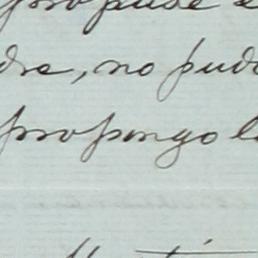 propuse
dre, no pudo
propongo l